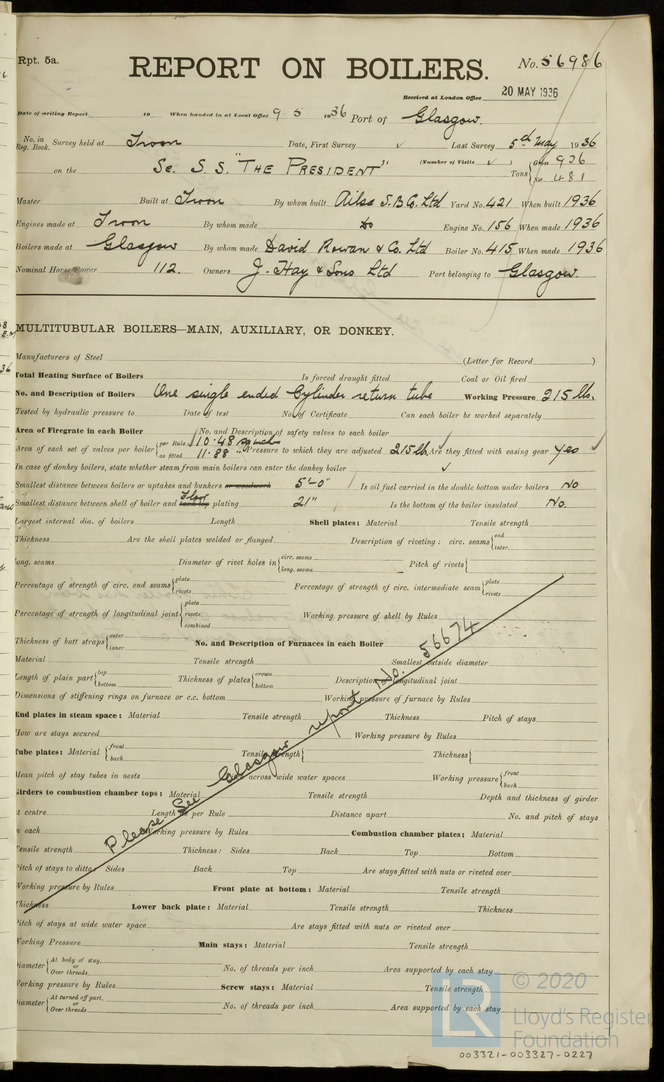 Rpt. 5a.
REPORT ON BOILERS.
No. 56986
Received at London Office 20 MAY 1936
Date of writing Report 19 When handed in at Local Office 9. 5. 1936 Port of Glasgow.
No. in Reg. Book. Survey held at Troon Date, First Survey Last Survey 5th May 1936
on the Sc. S.S. "THE PRESIDENT" (Number of Visits ) Tons { Gross 926 Net 481
Master Built at Troon By whom built Ailsa S.B. Co. Ltd Yard No. 421 When built 1936
Engines made at Troon By whom made Do Engine No. 156 When made 1936
Boilers made at Glasgow By whom made David Rowan & Co. Ltd Boiler No. 415 When made 1936
Nominal Horse Power 112. Owners J. Hay & Sons Ltd Port belonging to Glasgow.
MULTITUBULAR BOILERS—MAIN, AUXILIARY, OR DONKEY.
Manufacturers of Steel (Letter for Record )
Total Heating Surface of Boilers Is forced draught fitted Coal or Oil fired
No. and Description of Boilers One single ended Cylinder return tube Working Pressure 215 lbs.
Tested by hydraulic pressure to Date of test No. of Certificate Can each boiler be worked separately
Area of Firegrate in each Boiler No. and Description of safety valves to each boiler
Area of each set of valves per boiler { per Rule 10.48 as fitted 11.88 Pressure to which they are adjusted 215 lb. Are they fitted with easing gear Yes
In case of donkey boilers, state whether steam from main boilers can enter the donkey boiler
Smallest distance between boilers or uptakes and bunkers or woodwork 5'-0" Is oil fuel carried in the double bottom under boilers No
Smallest distance between shell of boiler and tank top Floor plating 21" Is the bottom of the boiler insulated No.
Largest internal dia. of boilers Length Shell plates: Material Tensile strength
Thickness Are the shell plates welded or flanged Description of riveting: circ. seams { end inter.
long. seams Diameter of rivet holes in { circ. seams long. seams Pitch of rivets {
Percentage of strength of circ. end seams { plate rivets Percentage of strength of circ. intermediate seam { plate rivets
Percentage of strength of longitudinal joint { plate rivets combined Working pressure of shell by Rules
Thickness of butt straps { outer inner No. and Description of Furnaces in each Boiler
Material Tensile strength Smallest outside diameter
Length of plain part { top bottom Thickness of plates { crown bottom Description of longitudinal joint
Dimensions of stiffening rings on furnace or c.c. bottom Working pressure of furnace by Rules
End plates in steam space: Material Tensile strength Thickness Pitch of stays
How are stays secured Working pressure by Rules
Tube plates: Material { front back Tensile strength { Thickness {
Mean pitch of stay tubes in nests across wide water spaces Working pressure { front back
Girders to combustion chamber tops: Material Tensile strength Depth and thickness of girder
at centre Length as per Rule Distance apart No. and pitch of stays
in each Working pressure by Rules Combustion chamber plates: Material
Tensile strength Thickness: Sides Back Top Bottom
Pitch of stays to ditto: Sides Back Top Are stays fitted with nuts or riveted over
Working pressure by Rules Front plate at bottom: Material Tensile strength
Thickness Lower back plate: Material Tensile strength Thickness
Pitch of stays at wide water space Are stays fitted with nuts or riveted over
Working Pressure Main stays: Material Tensile strength
Diameter { At body of stay, or Over threads No. of threads per inch Area supported by each stay
Working pressure by Rules Screw stays: Material Tensile strength
Diameter { At turned off part, or Over threads No. of threads per inch Area supported by each stay
Please See Glasgow report No. 56674
© 2020
Lloyd's Register
Foundation
003321-003327-0227